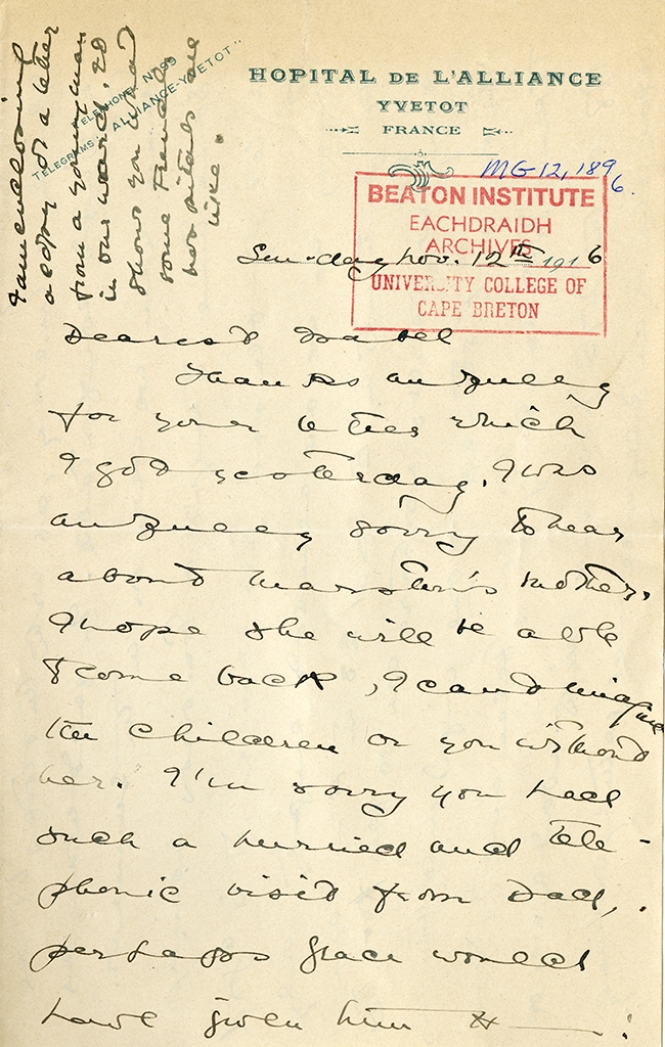 HOPITAL DE L'ALLIANCE
YVETOT
FRANCE
TELEPHONE: Nº 99
TELEGRAMS: "ALLIANCE-YVETOT"
I am enclosing
a copy of a letter
from a young man
in our ward, to
show you what
some French
hospitals are
like.
MG 12, 189
6.
BEATON INSTITUTE
EACHDRAIDH
ARCHIVES
UNIVERSITY COLLEGE OF
CAPE BRETON
Sunday Nov. 12th 1916
Dearest Isabel
Thanks awfully
for your letter which
I got yesterday. I was
awfully sorry to hear
about Marston's mother.
I hope she will be able
to come back, I can't imagine
the children or you without
her. I'm sorry you had
such a hurried and tele-
phonic visit from Dad,
perhaps Grace would
have given him H——!